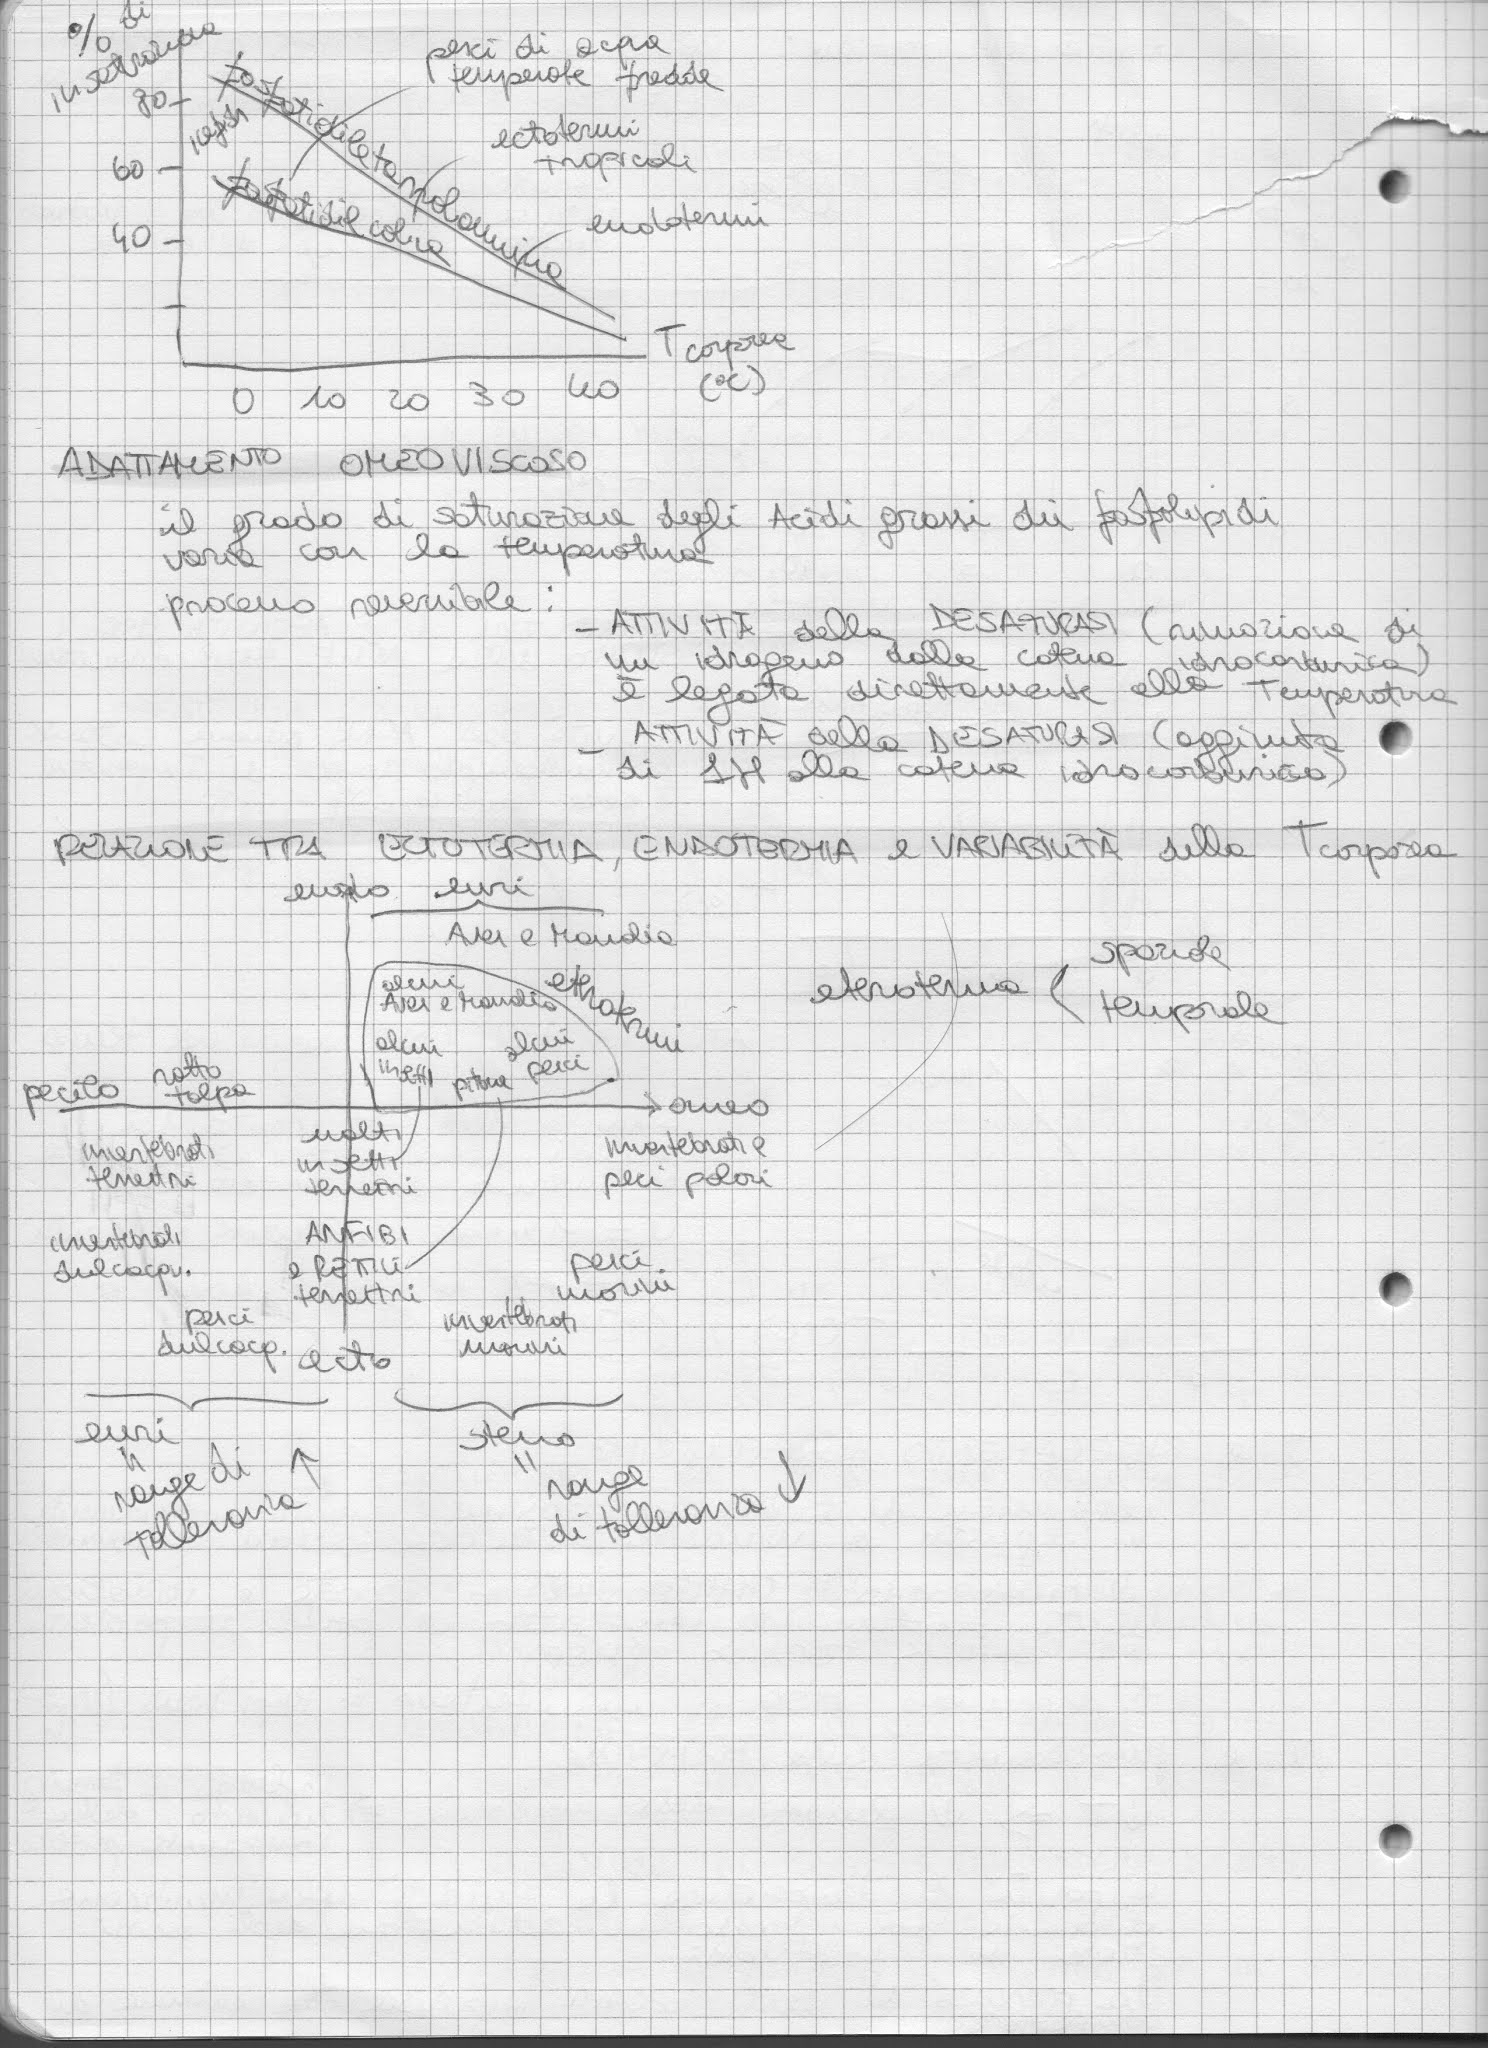 % di
insaturazione
80
60
40
icefish
fosfatidiletanolammina
fosfatidilcolina
pesci di acqua
temperate fredde
ectotermi
tropicali
endotermi
T corporea
(°C)
0 10 20 30 40
ADATTAMENTO OMEOVISCOSO
il grado di saturazione degli Acidi grassi dei fosfolipidi
varia con la temperatura
processo reversibile:
- ATTIVITÀ della DESATURASI (rimozione di
un idrogeno dalla catena idrocarburica)
è legata direttamente alla Temperatura
- ATTIVITÀ della DESATURASI (aggiunta
di 1H alla catena idrocarburica)
RELAZIONE TRA ECTOTERMIA, ENDOTERMIA e VARIABILITÀ della T corporea
endo euri
Aves e Mammalia
alcuni
Aves e Mammalia
eterotermi
alcuni
insetti
pitone
alcuni
pesci
eterotermia
spaziale
temporale
pecilo
ratto
talpa
omeo
invertebrati
terrestri
molti
insetti
terrestri
invertebrati e
pesci polari
invertebrati
dulcacqu.
ANFIBI
e RETTILI
terrestri
pesci
marini
pesci
dulcacq.
invertebrati
marini
ecto
euri
=
range di
tolleranza ↑
steno
=
range
di tolleranza ↓